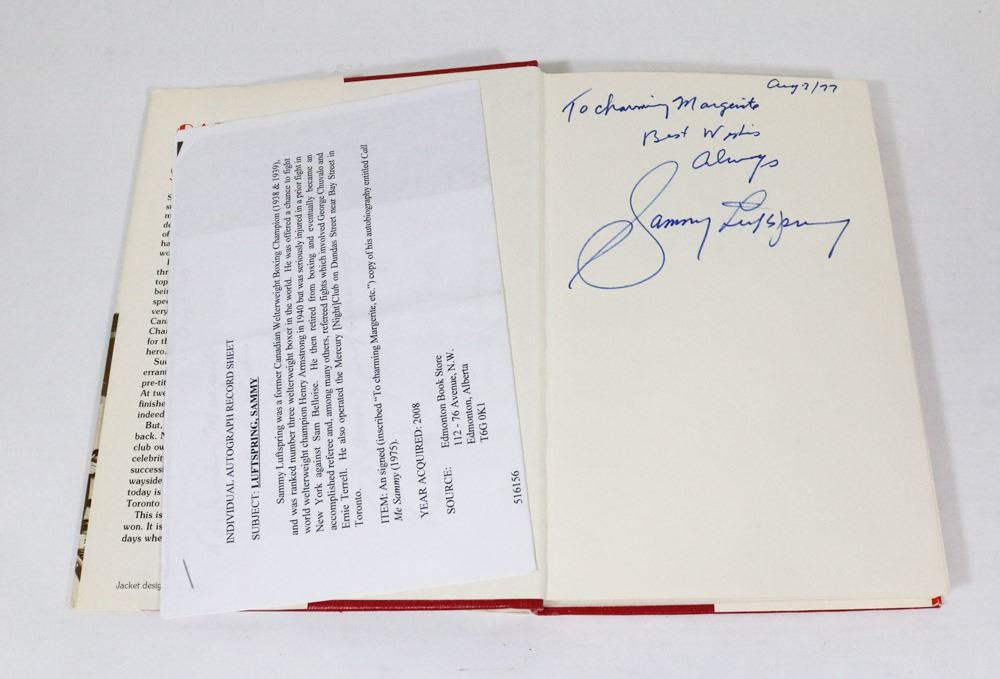 thr
top
bei
spe
very
Can
Cha
for th
hero.
Suc
errant
pre-tit
At twe
finishe
indeed
But,
back. N
club ow
celebrit
success
wayside
today is
Toronto
This is
won. It is
days whe
Jacket desig
INDIVIDUAL AUTOGRAPH RECORD SHEET
SUBJECT: LUFTSPRING, SAMMY
Sammy Luftspring was a former Canadian Welterweight Boxing Champion (1938 & 1939),
and was ranked number three welterweight boxer in the world. He was offered a chance to fight
world welterweight champion Henry Armstrong in 1940 but was seriously injured in a prior fight in
New York against Sam Belloise. He then retired from boxing and eventually became an
accomplished referee and, among many others, refereed fights which involved George Chuvalo and
Ernie Terrell. He also operated the Mercury [Night]Club on Dundas Street near Bay Street in
Toronto.
ITEM: An signed (inscribed "To charming Margerite, etc.") copy of his autobiography entitled Call
Me Sammy (1975).
YEAR ACQUIRED: 2008
SOURCE: Edmonton Book Store
112 - 76 Avenue, N.W.
Edmonton, Alberta
T6G 0K1
516156
Aug 7/77
To charming Margerite
Best Wishes
Always
Sammy Luftspring